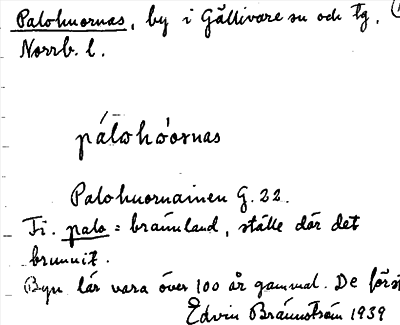 Palohuornas, by i Gällivare sn och tg,
Norrb. l.
pálohóornas
Palohuornainen G. 22.
Fi. palo = bränland, ställe där det
brunnit.
Byn lär vara över 100 år gammal. De först
Edvin Brännström 1939